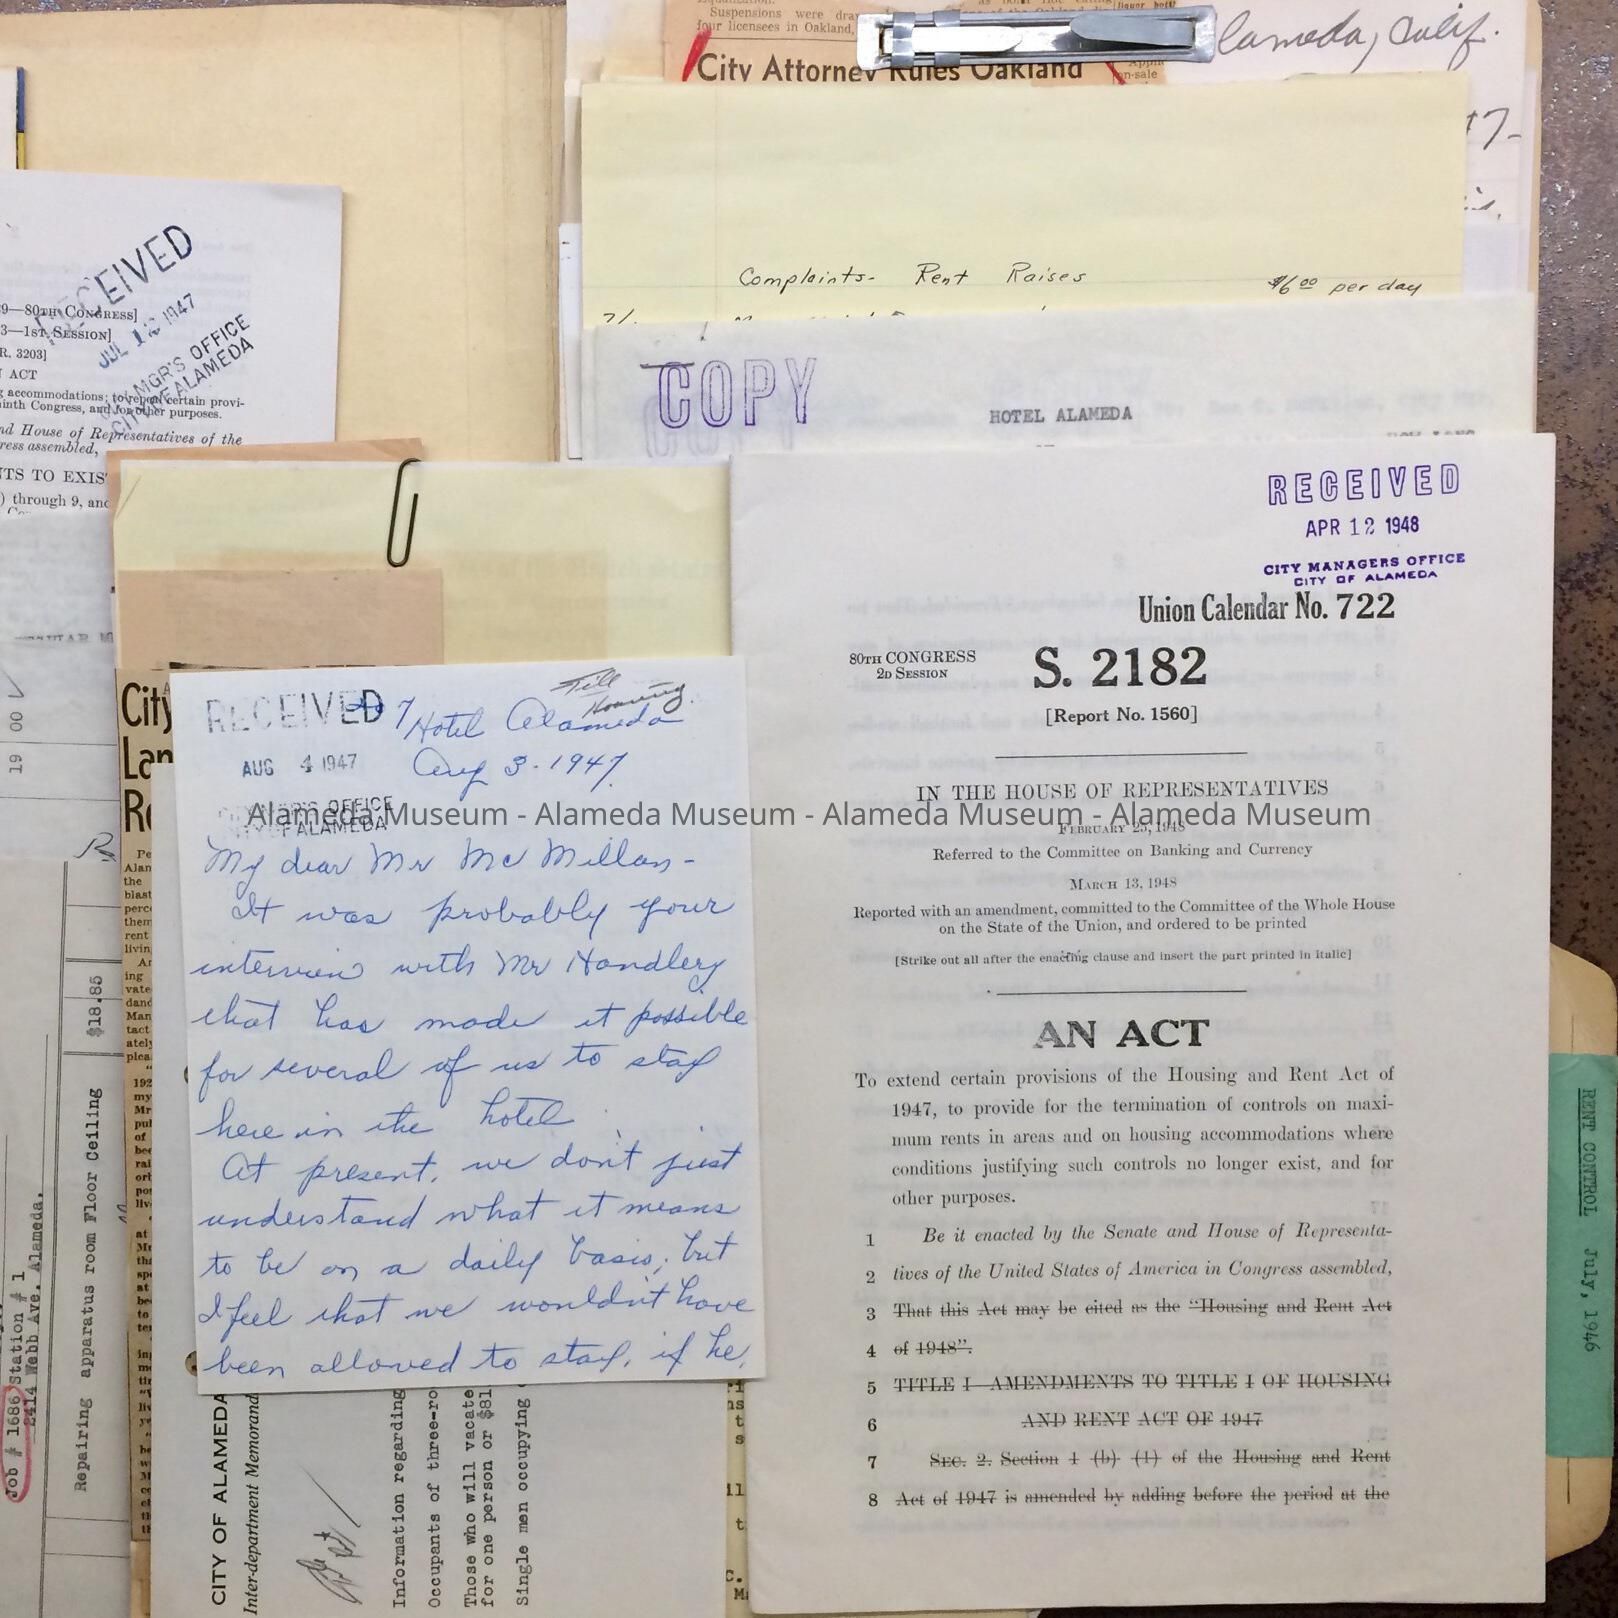 Suspensions were
four licensees in Oakland,
liquor
City Attorney Rules Oakland
on-sale
Alameda, Calif.
Complaints- Rent Raises $6.00 per day
COPY
HOTEL ALAMEDA
RECEIVED
JUL 1947
CITY MGR'S OFFICE
CITY OF ALAMEDA
9—80TH CONGRESS]
3—1ST SESSION]
R. 3203]
ACT
g accommodations; to repeal certain provi-
inth Congress, and for other purposes.
nd House of Representatives of the
ress assembled,
NTS TO EXIS
) through 9, and
19 00
RECEIVED
AUG 4 1947
OFFICE
OF ALAMEDA
File
Housing
Hotel Alameda
Aug 3-1947.
My dear Mr McMillan-
It was probably your
interview with Mr Handlery
that has made it possible
for several of us to stay
here in the hotel.
At present, we don't just
understand what it means
to be on a daily basis; but
I feel that we wouldn't have
been allowed to stay, if he,
City
Lan
Job # 1686 Station # 1
2414 Webb Ave. Alameda.
Repairing apparatus room Floor Ceiling $18.85
CITY OF ALAMEDA
Inter-department Memorand
Information regarding
Occupants of three-ro
Those who will vacate
for one person or $81
Single men occupying
RECEIVED
APR 12 1948
CITY MANAGERS OFFICE
CITY OF ALAMEDA
Union Calendar No. 722
80TH CONGRESS
2D SESSION
S. 2182
[Report No. 1560]
IN THE HOUSE OF REPRESENTATIVES
FEBRUARY 25, 1948
Referred to the Committee on Banking and Currency
MARCH 13, 1948
Reported with an amendment, committed to the Committee of the Whole House
on the State of the Union, and ordered to be printed
[Strike out all after the enacting clause and insert the part printed in italic]
AN ACT
To extend certain provisions of the Housing and Rent Act of
1947, to provide for the termination of controls on maxi-
mum rents in areas and on housing accommodations where
conditions justifying such controls no longer exist, and for
other purposes.
1 Be it enacted by the Senate and House of Representa-
2 tives of the United States of America in Congress assembled,
3 That this Act may be cited as the "Housing and Rent Act
4 of 1948".
5 TITLE I—AMENDMENTS TO TITLE I OF HOUSING
6 AND RENT ACT OF 1947
7 SEC. 2. Section 1 (b) (1) of the Housing and Rent
8 Act of 1947 is amended by adding before the period at the
RENT CONTROL July, 1946
Alameda Museum - Alameda Museum - Alameda Museum - Alameda Museum